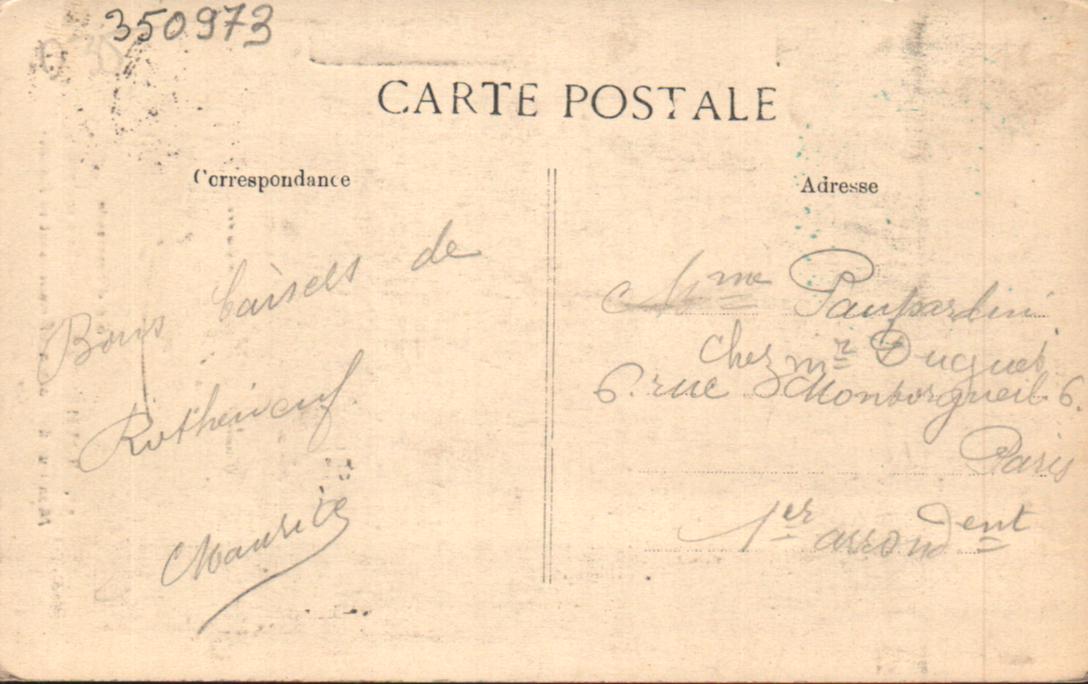 350973
CARTE POSTALE
Correspondance
Bons baisers de
Rothéneuf
Maurice
Adresse
Mme Paupardin
chez mr Duguet
6. rue Montorgueil 6.
Paris
1er arrondent